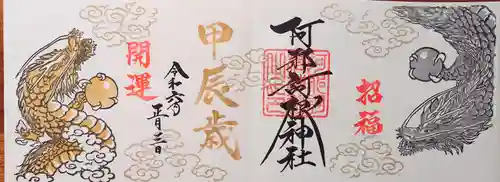 招福
阿邪訶根神社
甲辰歳
令和六年
正月三日
開運